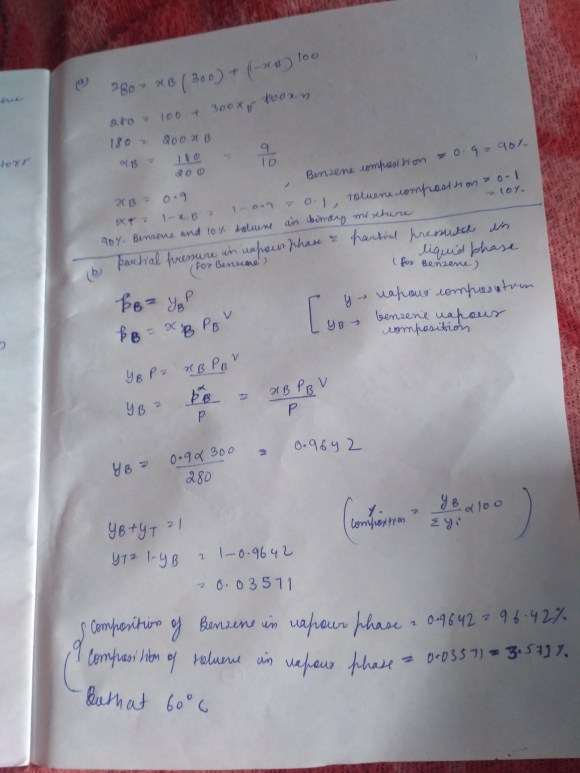 (a) 280 = xB (300) + (1-xB) 100
280 = 100 + 300xB - 100xB
180 = 200xB
xB = 180/200 = 9/10
xB = 0.9, Benzene composition = 0.9 = 90%
xT = 1-xB = 1-0.9 = 0.1, toluene composition = 0.1 = 10%
90% Benzene and 10% toluene in binary mixture
(b) partial pressure in vapour phase = partial pressure in liquid phase
(for Benzene) (for Benzene)
pB = yB P [ y → vapour composition
pB = xB PB^V yB → benzene vapour composition
yB P = xB PB^V
yB = pB/P = xB PB^V/P
yB = 0.9 x 300/280 = 0.9642
yB + yT = 1 (% composition = yB/Σyi x 100)
yT = 1-yB = 1-0.9642
= 0.03571
Composition of Benzene in vapour phase = 0.9642 = 96.42%
Composition of toluene in vapour phase = 0.03571 = 3.571%
60°C